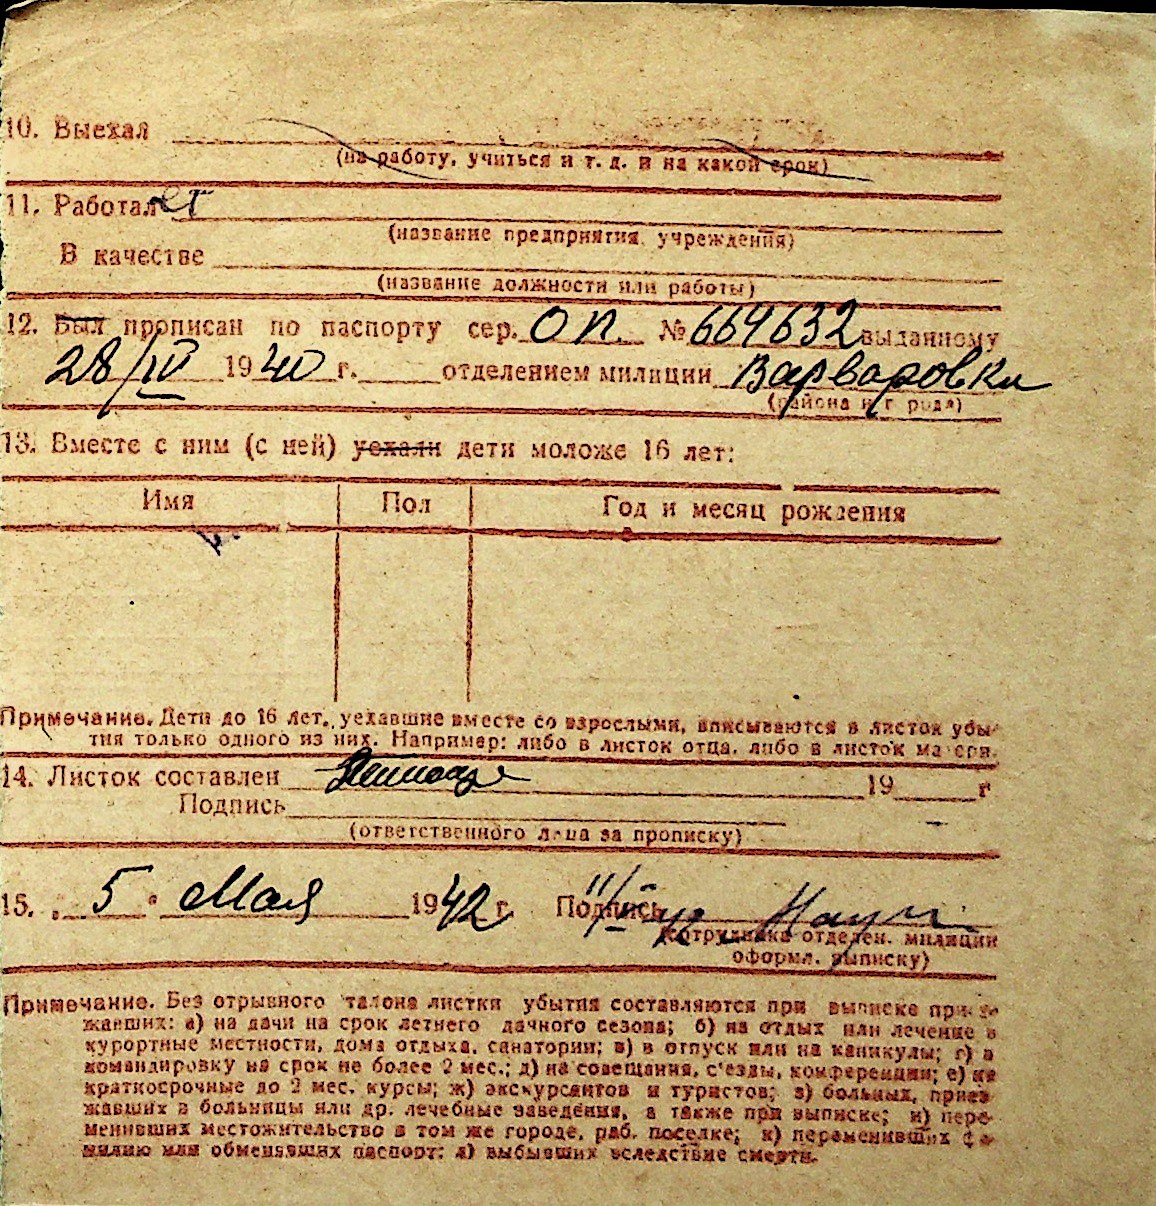 10. Выехал
(на работу, учиться и т. д. и на какой срок)
11. Работает
(название предприятия, учреждения)
В качестве
(название должности или работы)
12. Был прописан по паспорту сер. ОП. № 664632 выданному
28/IV 1940 г. отделением милиции Варваровки
(района и г рода)
13. Вместе с ним (с ней) уехали дети моложе 16 лет:
Имя Пол Год и месяц рождения
Примечание. Дети до 16 лет, уехавшие вместе со взрослыми, вписываются в листок убы-
тия только одного из них. Например: либо в листок отца, либо в листок ма ери.
14. Листок составлен 19 г
Подпись
(ответственного лица за прописку)
15. 5 " Мая 1942 г. Подпись
(сотрудника отделен. милиции
оформл. выписку)
Примечание. Без отрывного талона листки убытия составляются при выписке прие-
жавших: а) на дачи на срок летнего дачного сезона; б) на отдых или лечение в
курортные местности, дома отдыха, санатории; в) в отпуск или на каникулы; г) в
командировку на срок не более 2 мес.; д) на совещания, с'езды, конференции; е) на
краткосрочные до 2 мес. курсы; ж) экскурсантов и туристов; з) больных, приез
жавших в больницы или др. лечебные заведения, а также при выписке; и) пере-
менивших местожительство в том же городе, раб. поселке; к) переменивших фа-
милию или обменявших паспорт; л) выбывших вследствие смерти.